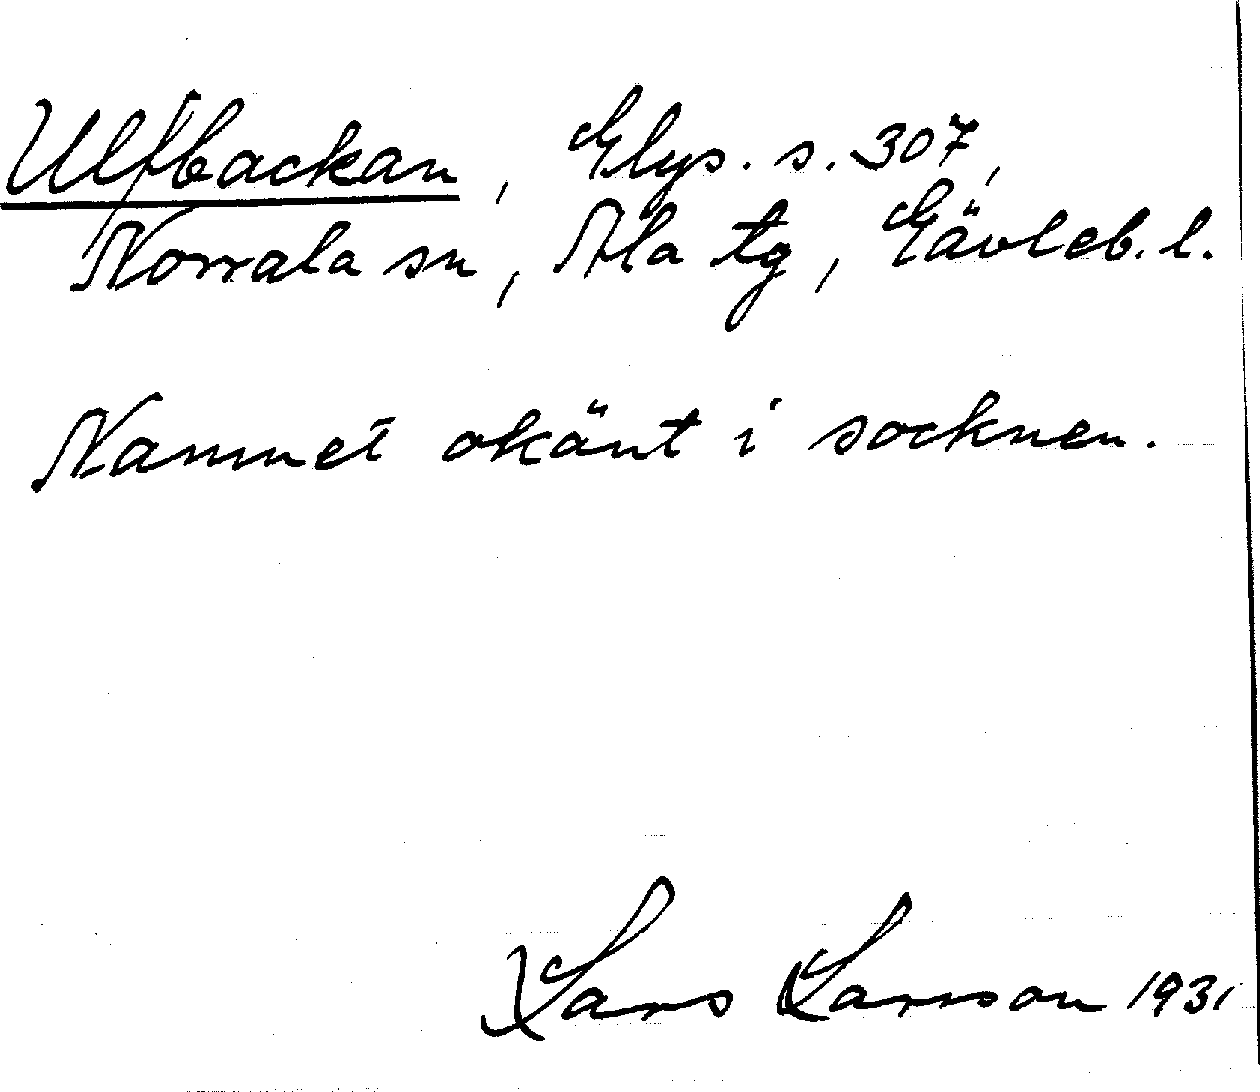 Ulfbackan, Glys. s. 307,
Norrala sn, Ala tg, Gävleb. l.
Namnet okänt i socknen.
Lars Larsson 1931